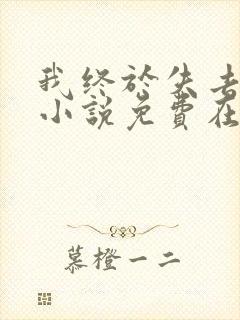 我终於失去
小說免費在
慕橙一二